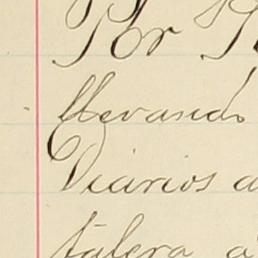 Por
llevando
Diarios a
talera a